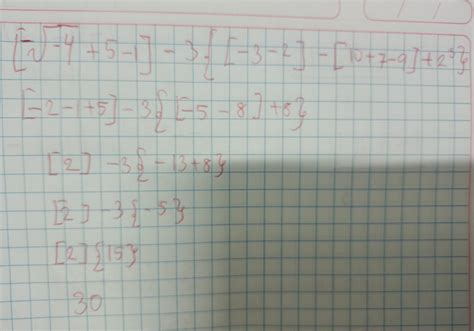 [-√-4 + 5 - 1] - 3{[-3 - 2] - [10 + 7 - 9] + 2³}
[-2 - 1 + 5] - 3{[-5 - 8] + 8}
[2] - 3{-13 + 8}
[2] - 3{-5}
[2]{15}
30